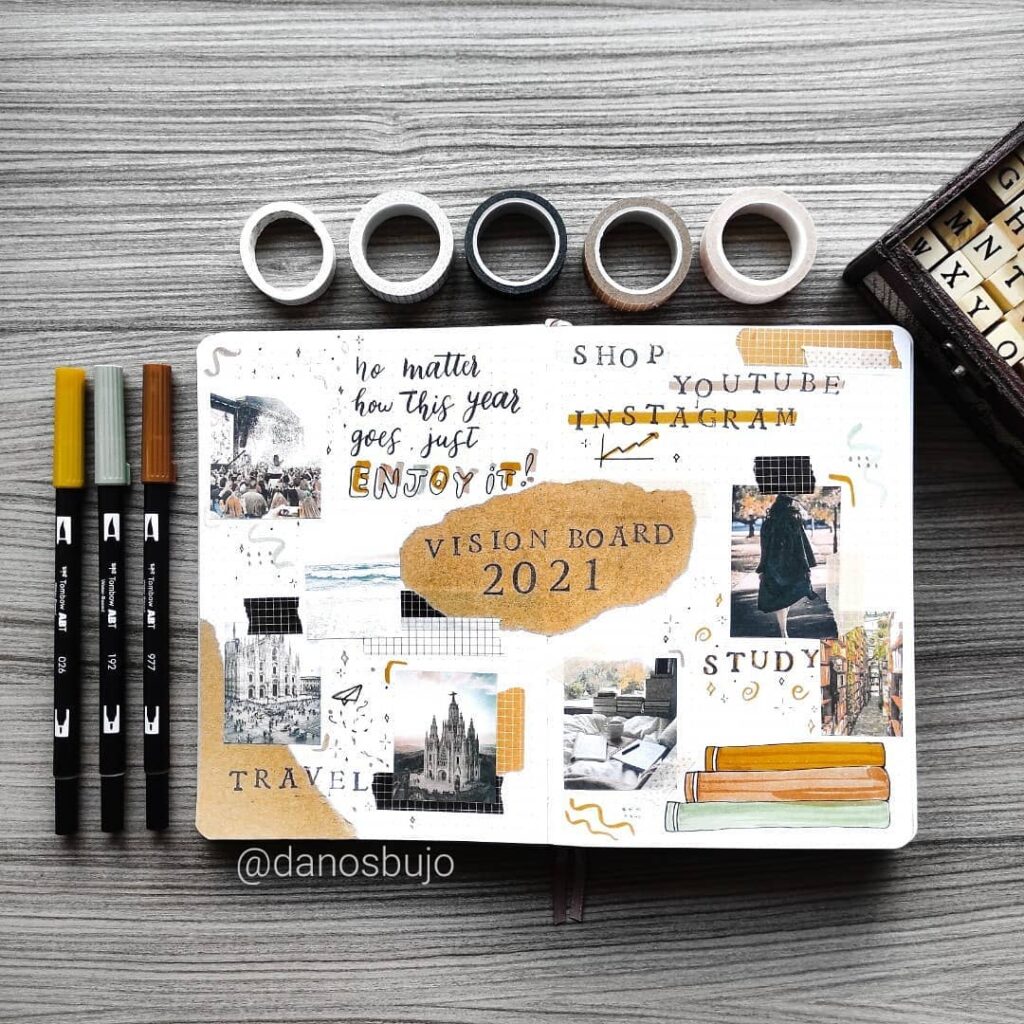 no matter
how this year
goes just
ENJOY iT!
SHOP
YOUTUBE
INSTAGRAM
VISION BOARD
2021
STUDY
TRAVEL
Tombow ABT
026
Tombow ABT
192
Tombow ABT
977
G
H
M N T
W X Y
@danosbujo